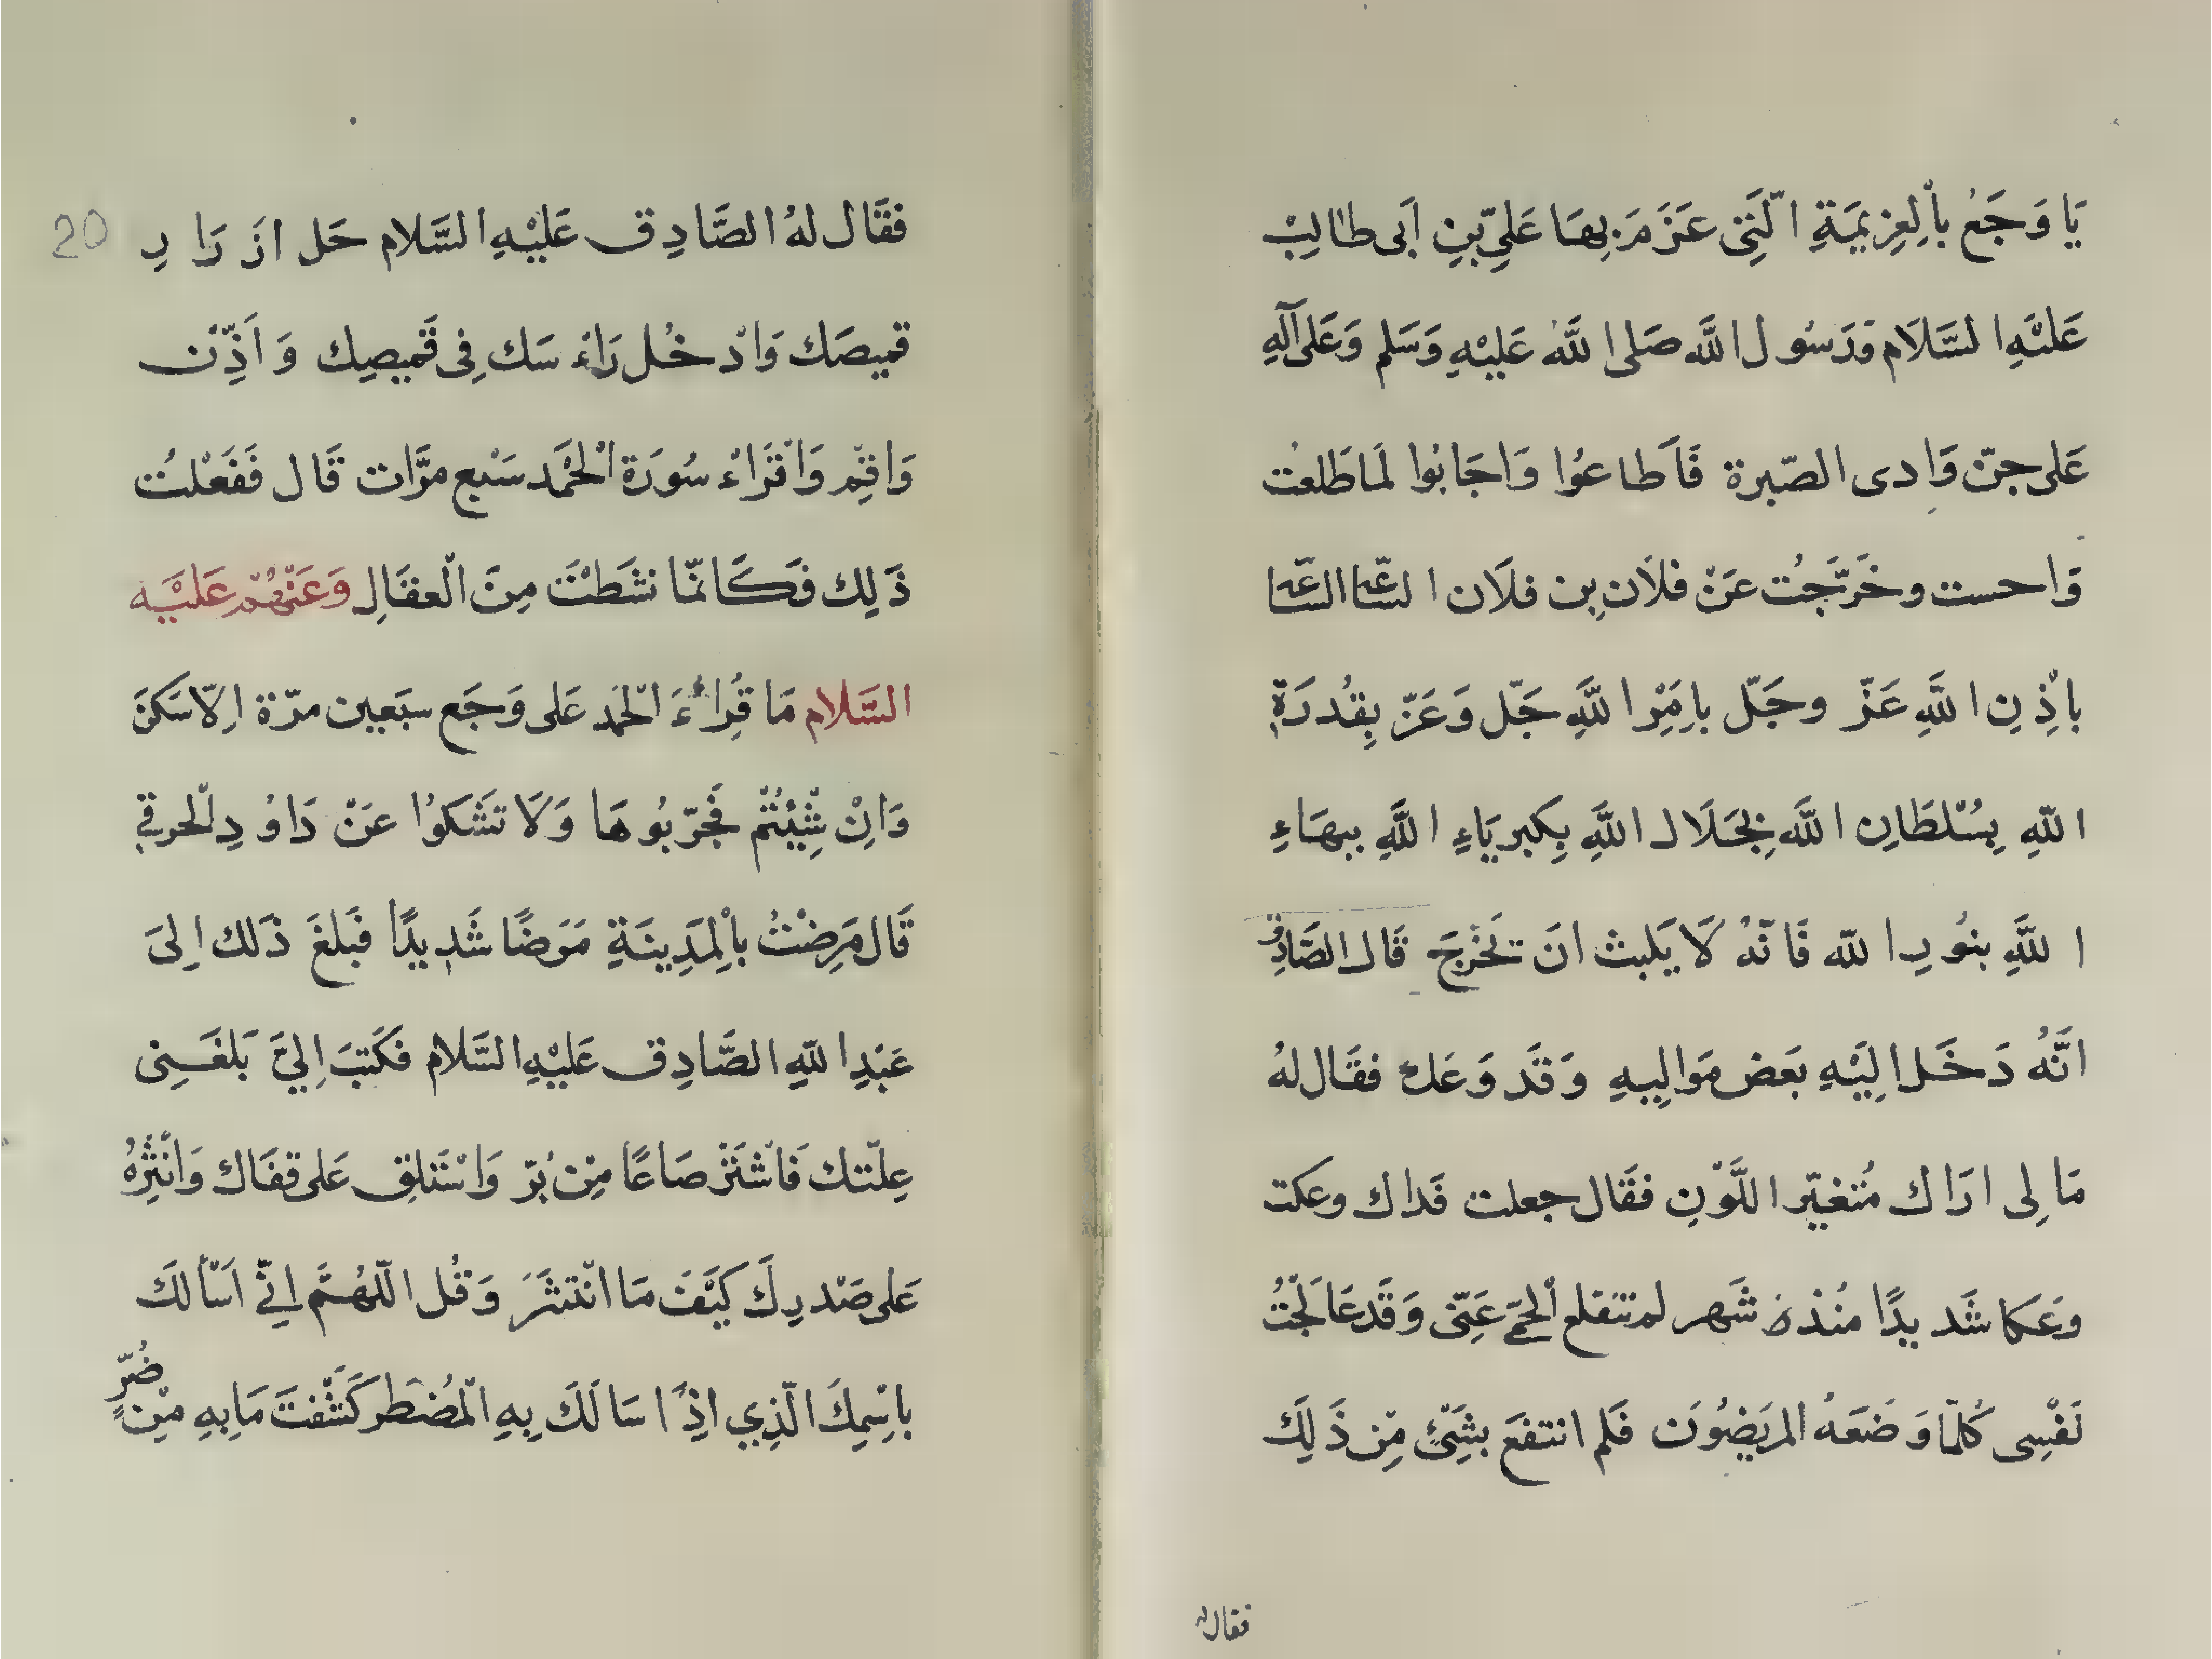 يَا وَجَعُ بِاْلعَزِيمَةِ الَّتِى عَزَمَ بِهَا عَلِىّ بْنِ اَبى طالِبْ
عَلَيْهِ السَّلَام وَرَسُول اللَّه صَلى اللَّهُ عَلَيْهِ وَسَلم وَعَلى آلِهِ
عَلى جنّ وَادى الصّبرة فَاَطاعُوا وَاجَابُوا لَمَا طَلعْت
وَاحست وخَرَجْت عَنْ فلَان بِن فلَان السّاعة السّاعة
باِذْنِ اللَّهِ عَزّ وجَلّ باِمْرِ اللَّهِ جَلّ وَعَزّ بِقُدرَة
اللّهِ بِسُلْطَانِ اللَّهِ بِجَلَال اللَّهِ بِكبريَاءِ اللَّهِ ببهَاءِ
اللَّهِ بنُورِ اللّه فَانّهُ لَا يَلبث انَ تَخْرجَ قَال الصَّادِقْ
انَّهُ دَخَل اِلَيْهِ بَعَض مَوَالِيهِ وَقَد وَعَك فقَال لهُ
مَا لِى ارَاك مُتَغيّر اللَّوْنِ فقَال جعلت فَداك وعكت
وعَكا شَديدًا مُنْذ شَهر لم تنقلع اْلحمّى عَنّى وَقَد عَالَجْتُ
نَفْسِى كُلّمَا وَضَعَهُ المرَيضُوَن فَلم انتفَع بشَىْءٍ مِّن ذَلِكَ
فقال له
20
فقَال لهُ الصَّادِق عَلَيْهِ السَّلام حَل ازَرَارِ
قميصَك وَادْخُل رَاءْسَك فِى قَميصِك وَاَذِّنْ
وَاقِمْ وَاقْرَاءْ سُورَة اْلحَمْد سَبْع مرَّات قَال فَفَعْلتُ
ذَلِك فَكَانَّمَا نشَطْتَ مِنَ الْعقَالِ وَعَنْهُمْ عَلَيْه
السَّلام مَا قُرِاءَ الْحَمد عَلى وَجَع سبَعين مرّة اِلّا سَكَنَ
وَاِنْ شِئْتُمْ فجَرّبُوهَا وَلَا تشَكوُا عَنْ دَاوُدِ الْحرقي
قَال مَرِضْتُ باْلمَدِينَةِ مَرَضًا شَدِيدًا فَبلغَ ذَلك اِلىَ
عَبْدِ اللّهِ الصَّادِق عَلَيْهِ السَّلام فكَتبَ اِلىَّ بَلغَنِى
عِلّتك فَاشْتَرْ صَاعًا مِنْ بُرّ وَاسْتَلقِ عَلى قفَاك وَانْثِرْهُ
عَلى صَدْرِكَ كَيْفَ مَا انْتثَرَ وَقُل اللّهُمَّ اِنّي اَسْأَلكَ
بِاسْمِكَ الّذِي اِذَا سَالَكَ بِهِ الْمُضطَر كَشَفْتَ مَا بِهِ مِنْ ضُرّ